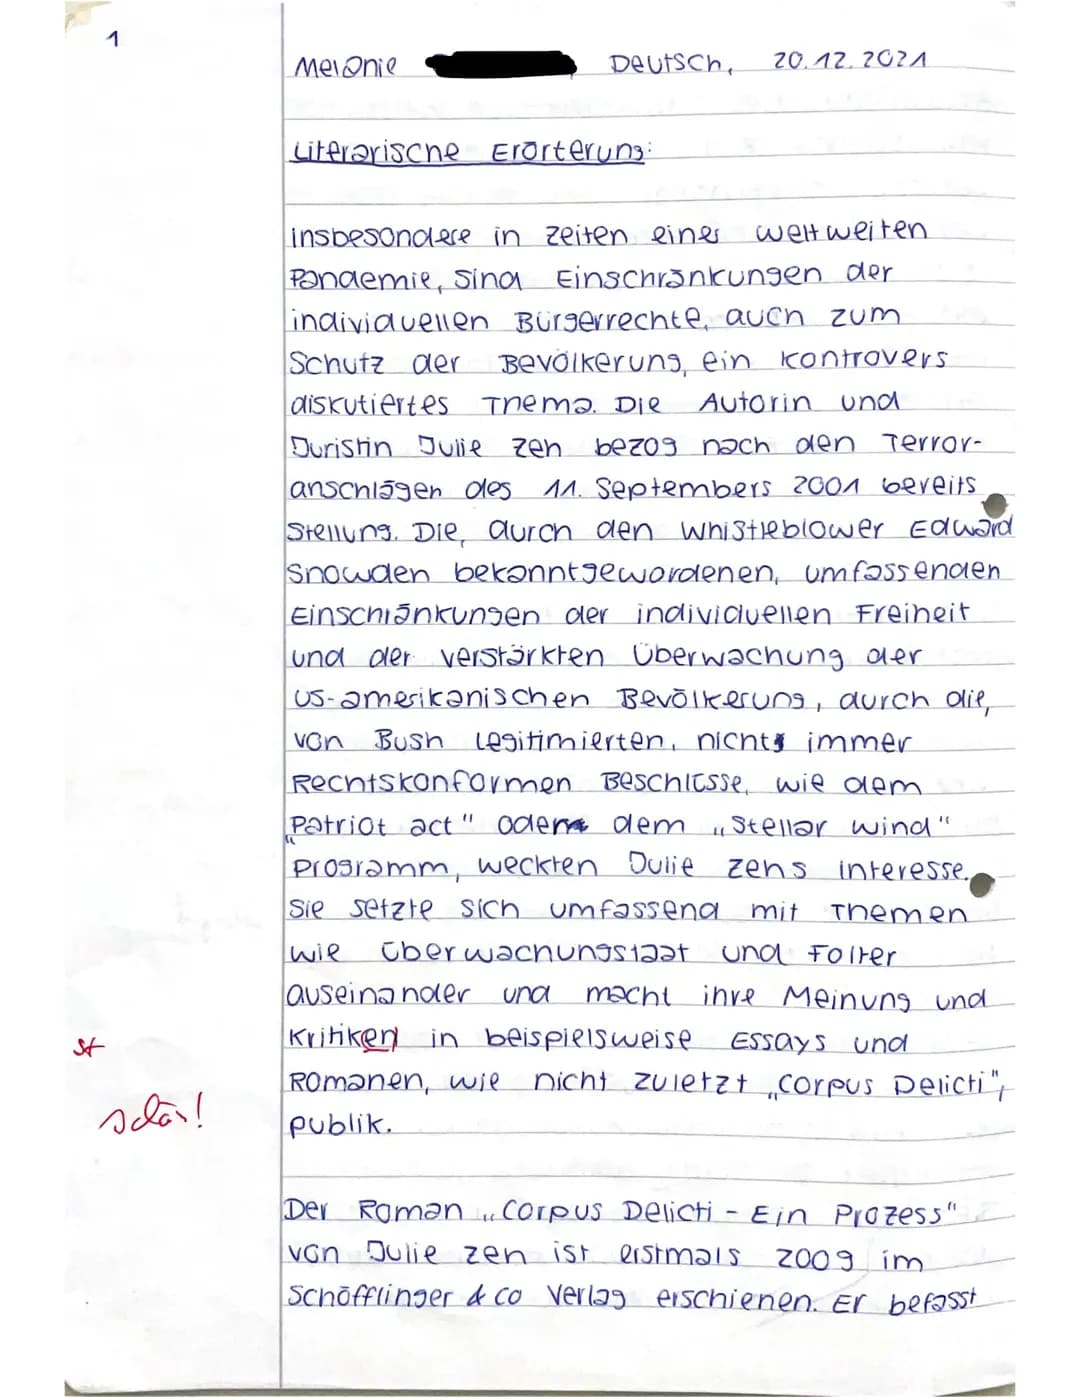 1
Melanie Deutsch, 20.12.2021
Literarische Erörterung:
insbesondere in zeiten einer weltweiten
Pandemie, sind Einschränkungen der
individuellen Bürgerrechte, auch zum
Schutz der Bevölkerung, ein kontrovers
diskutiertes Thema. Die Autorin und
Juristin Julie zeh bezog nach den Terror-
anschlägen des 11. Septembers 2001 bereits
Stellung. Die, durch den whistleblower Edward
Snowden bekanntgewordenen, umfassenden
Einschränkungen der individuellen Freiheit
und der verstärkten Überwachung der
US-amerikanischen Bevölkerung, durch die,
von Bush legitimierten, nicht immer
Rechtskonformen Beschlüsse, wie dem
„Patriot act" oder dem „Stellar wind"
Programm, weckten Julie zehs interesse.
Sie setzte sich umfassend mit Themen
wie Überwachungstaat und Folter
auseinander und macht ihre Meinung und
Kritiken in beispielsweise Essays und
st
Romanen, wie nicht zuletzt „Corpus Delicti",
schön!
publik.
Der Roman „Corpus Delicti - Ein Prozess"
von Julie zeh ist erstmals 2009 im
Schöfflinger & co Verlag erschienen. Er befasst